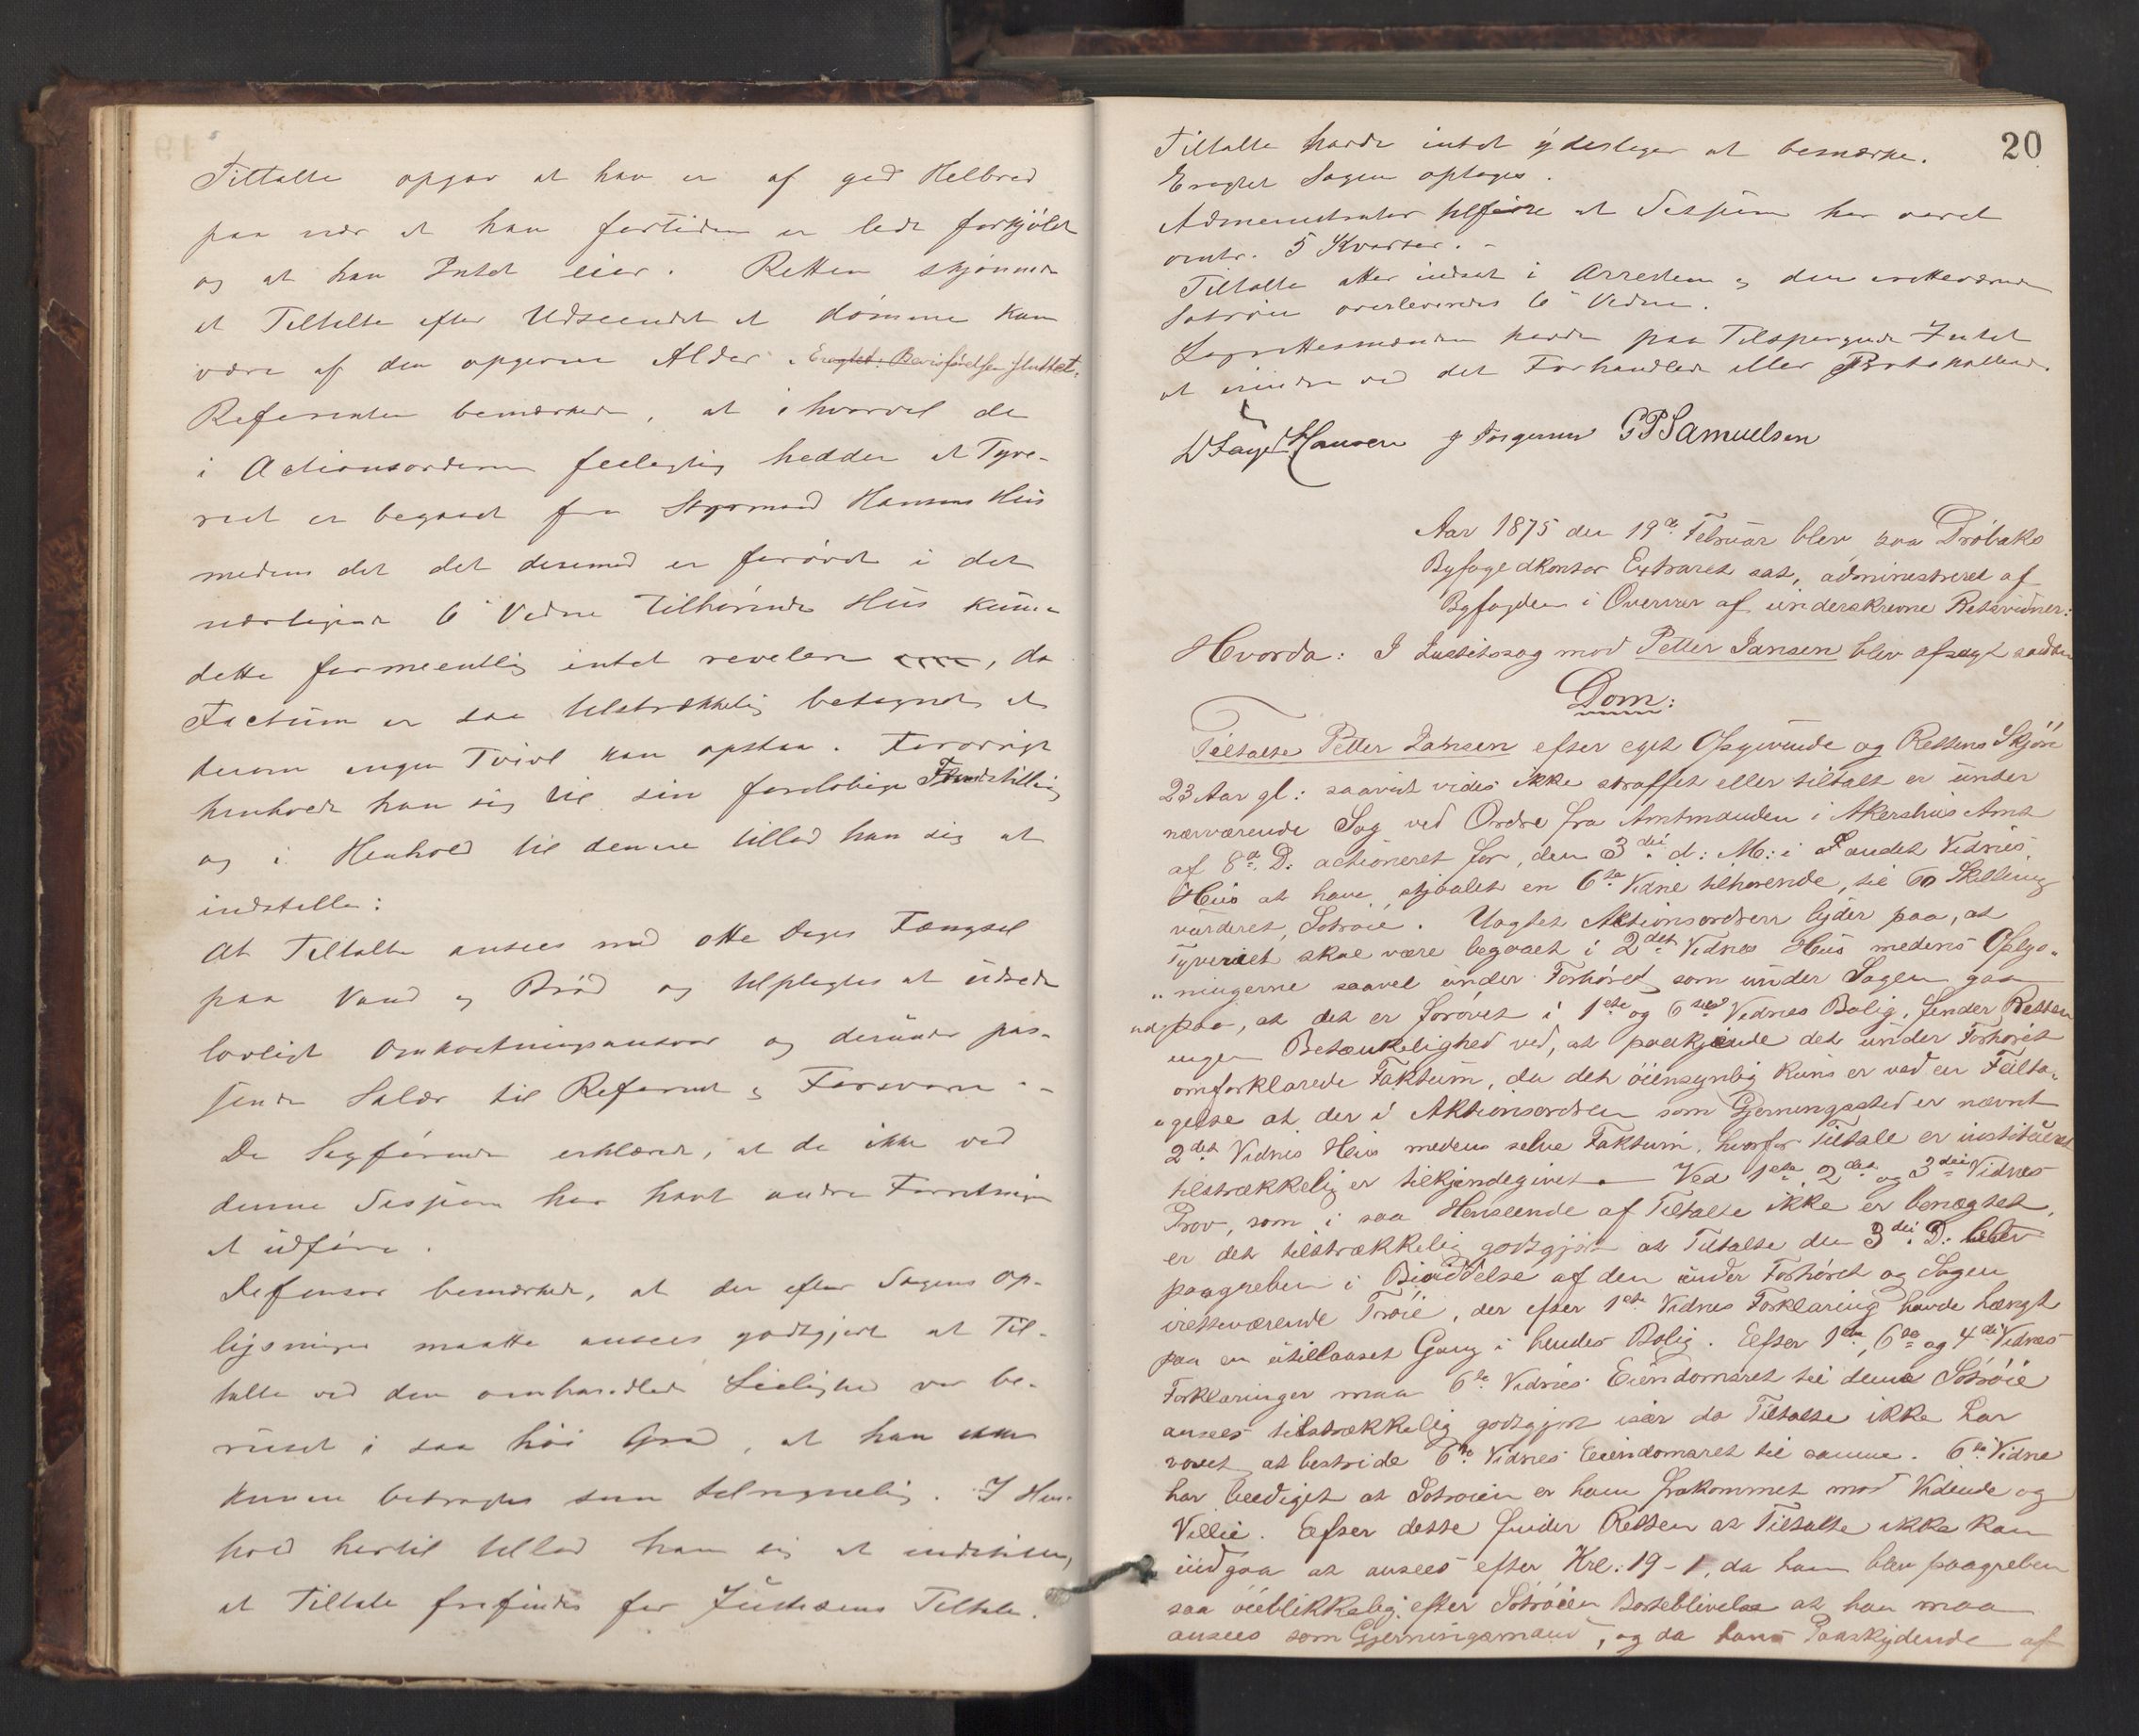 Tiltalte opgav at han er af god Helbred
paa nær at han fortiden er lidt forkjølet
og at han Intet eier. Retten skjønnede
at Tiltalte efter Udseendet at dømme kan
være af den opgivne Alder. Eragtet: Bevisførelsen sluttet.
Referenten bemærkede, at ihvorvel de
i Actionsordren feilagtig hedder at Tyve-
riet er begaaet fra Styrmand Hansens Hus
medens det det desmed er forøvet i det
nærliggende 6 Vidne tilhørende Hus kunde
dette formeentlig intet revelere, da
Factum er saa tilstrækkelig betegnet at
derom ingen Tvivl kan opstaa. Forøvrigt
henholdt han sig til sin foreløbige Fremstilling
og i Henhold til denne tillod han sig at
indstille:
At Tiltalte ansees med otte Dages Fængsel
paa Vand og Brød og tilpligtes at udrede
lovligt Omkostningsansvar og derunder pas-
sende Salær til Referent og Forsvarer.
De Sagførende erklærede, at de ikke ved
denne Session har havt andre Forretninger
at udføre.
Defensor bemærkede, at det efter Sagens Op-
lysninger maatte ansees godtgjort at Til-
talte ved den omhandlede Leilighed var be-
ruset i saa høi Grad, at han ikke
kunne betragtes som tilregnelig. I Hen-
hold hertil tillod han sig at indstille,
at Tiltalte frifindes for Justitiens Tiltale.
20
Tiltalte havde intet yderligere at bemærke.
Eragtet Sagen optages.
Administrator tilføiede at Sessionen har varet
omtr. 5 Kvarter.
Tiltalte atter indsat i Arresten og den iretteværende
Søtrøie overleveredes 6 Vidne.
Lagrettesmændene havde paa Tilspørgende Intet
at erindre ved det Forhandlede eller Protokollerede.
Hansen J Torgersen G P Samuelsen
Aar 1875 den 19de Februar blev paa Drøbaks
Byfogedkontor Extraret sat, administreret af
Byfogden i Overvær af underskrevne Retsvidner:
Hvorda: I Justitssag mod Petter Jansen blev afsagt saadan
Dom:
Tiltalte Petter Jansen efter eget Opgivende og Rettens Skjøn
23 Aar gl: saavidt vides ikke straffet eller tiltalt er under
nærværende Sag ved Ordre fra Amtmanden i Akershus Amt
af 8de D: actioneret for, den 3die d: M: i andet Vidnes
Hus at have stjaalet en 6te Vidne tilhørende, til 60 Skilling
vurderet, Søtrøie. Uagtet Aktionsordren lyder paa, at
Tyveriet skal være begaaet i 2det Vidnes Hus medens Oplys-
ningerne saavel under Forhøret som under Sagen gaa
ud paa, at det er forøvet i 1ste og 6te Vidnes Bolig, finder Retten
ingen Betænkelighed ved, at paakjende det under Forhøret
omforklarede Faktum, da det øiensynlig kuns er ved en Feilta-
gelse at der i Aktionsordren som Gjerningssted er nævnt
2det Vidnes Hus medens selve Faktum, hvorfor Tiltale er institueret
tilstrækkelig er tilkjendegivet. Ved 1ste, 2det og 3die Vidnes
Prov, som i saa Henseende af Tiltalte ikke er benægtet,
er det tilstrækkelig godtgjort at Tiltalte den 3die D: blev
paagreben i Besiddelse af den under Forhøret og Sagen
iretteværende Trøie, der efter 1ste Vidnes Forklaring havde hængt
paa en utillaaset Gang i hendes Bolig. Efter 1ste, 6te og 4de Vidnes
Forklaringer maa 6te Vidnes Eiendomsret til denne Søtrøie
ansees tilstrækkelig godtgjort især da Tiltalte ikke har
vovet at bestride 6te Vidnes Eiendomsret til samme. 6te Vidne
har beediget at Søtrøien er ham frakommet mod Vidende og
Villie. Efter dette finder Retten at Tiltalte ikke kan
undgaa at ansees efter Krl: 19-1, da han blev paagreben
saa øieblikkelig efter Søtrøiens Borteblivelse at han maa
ansees som Gjerningsmand, og da hans Paaskydende af